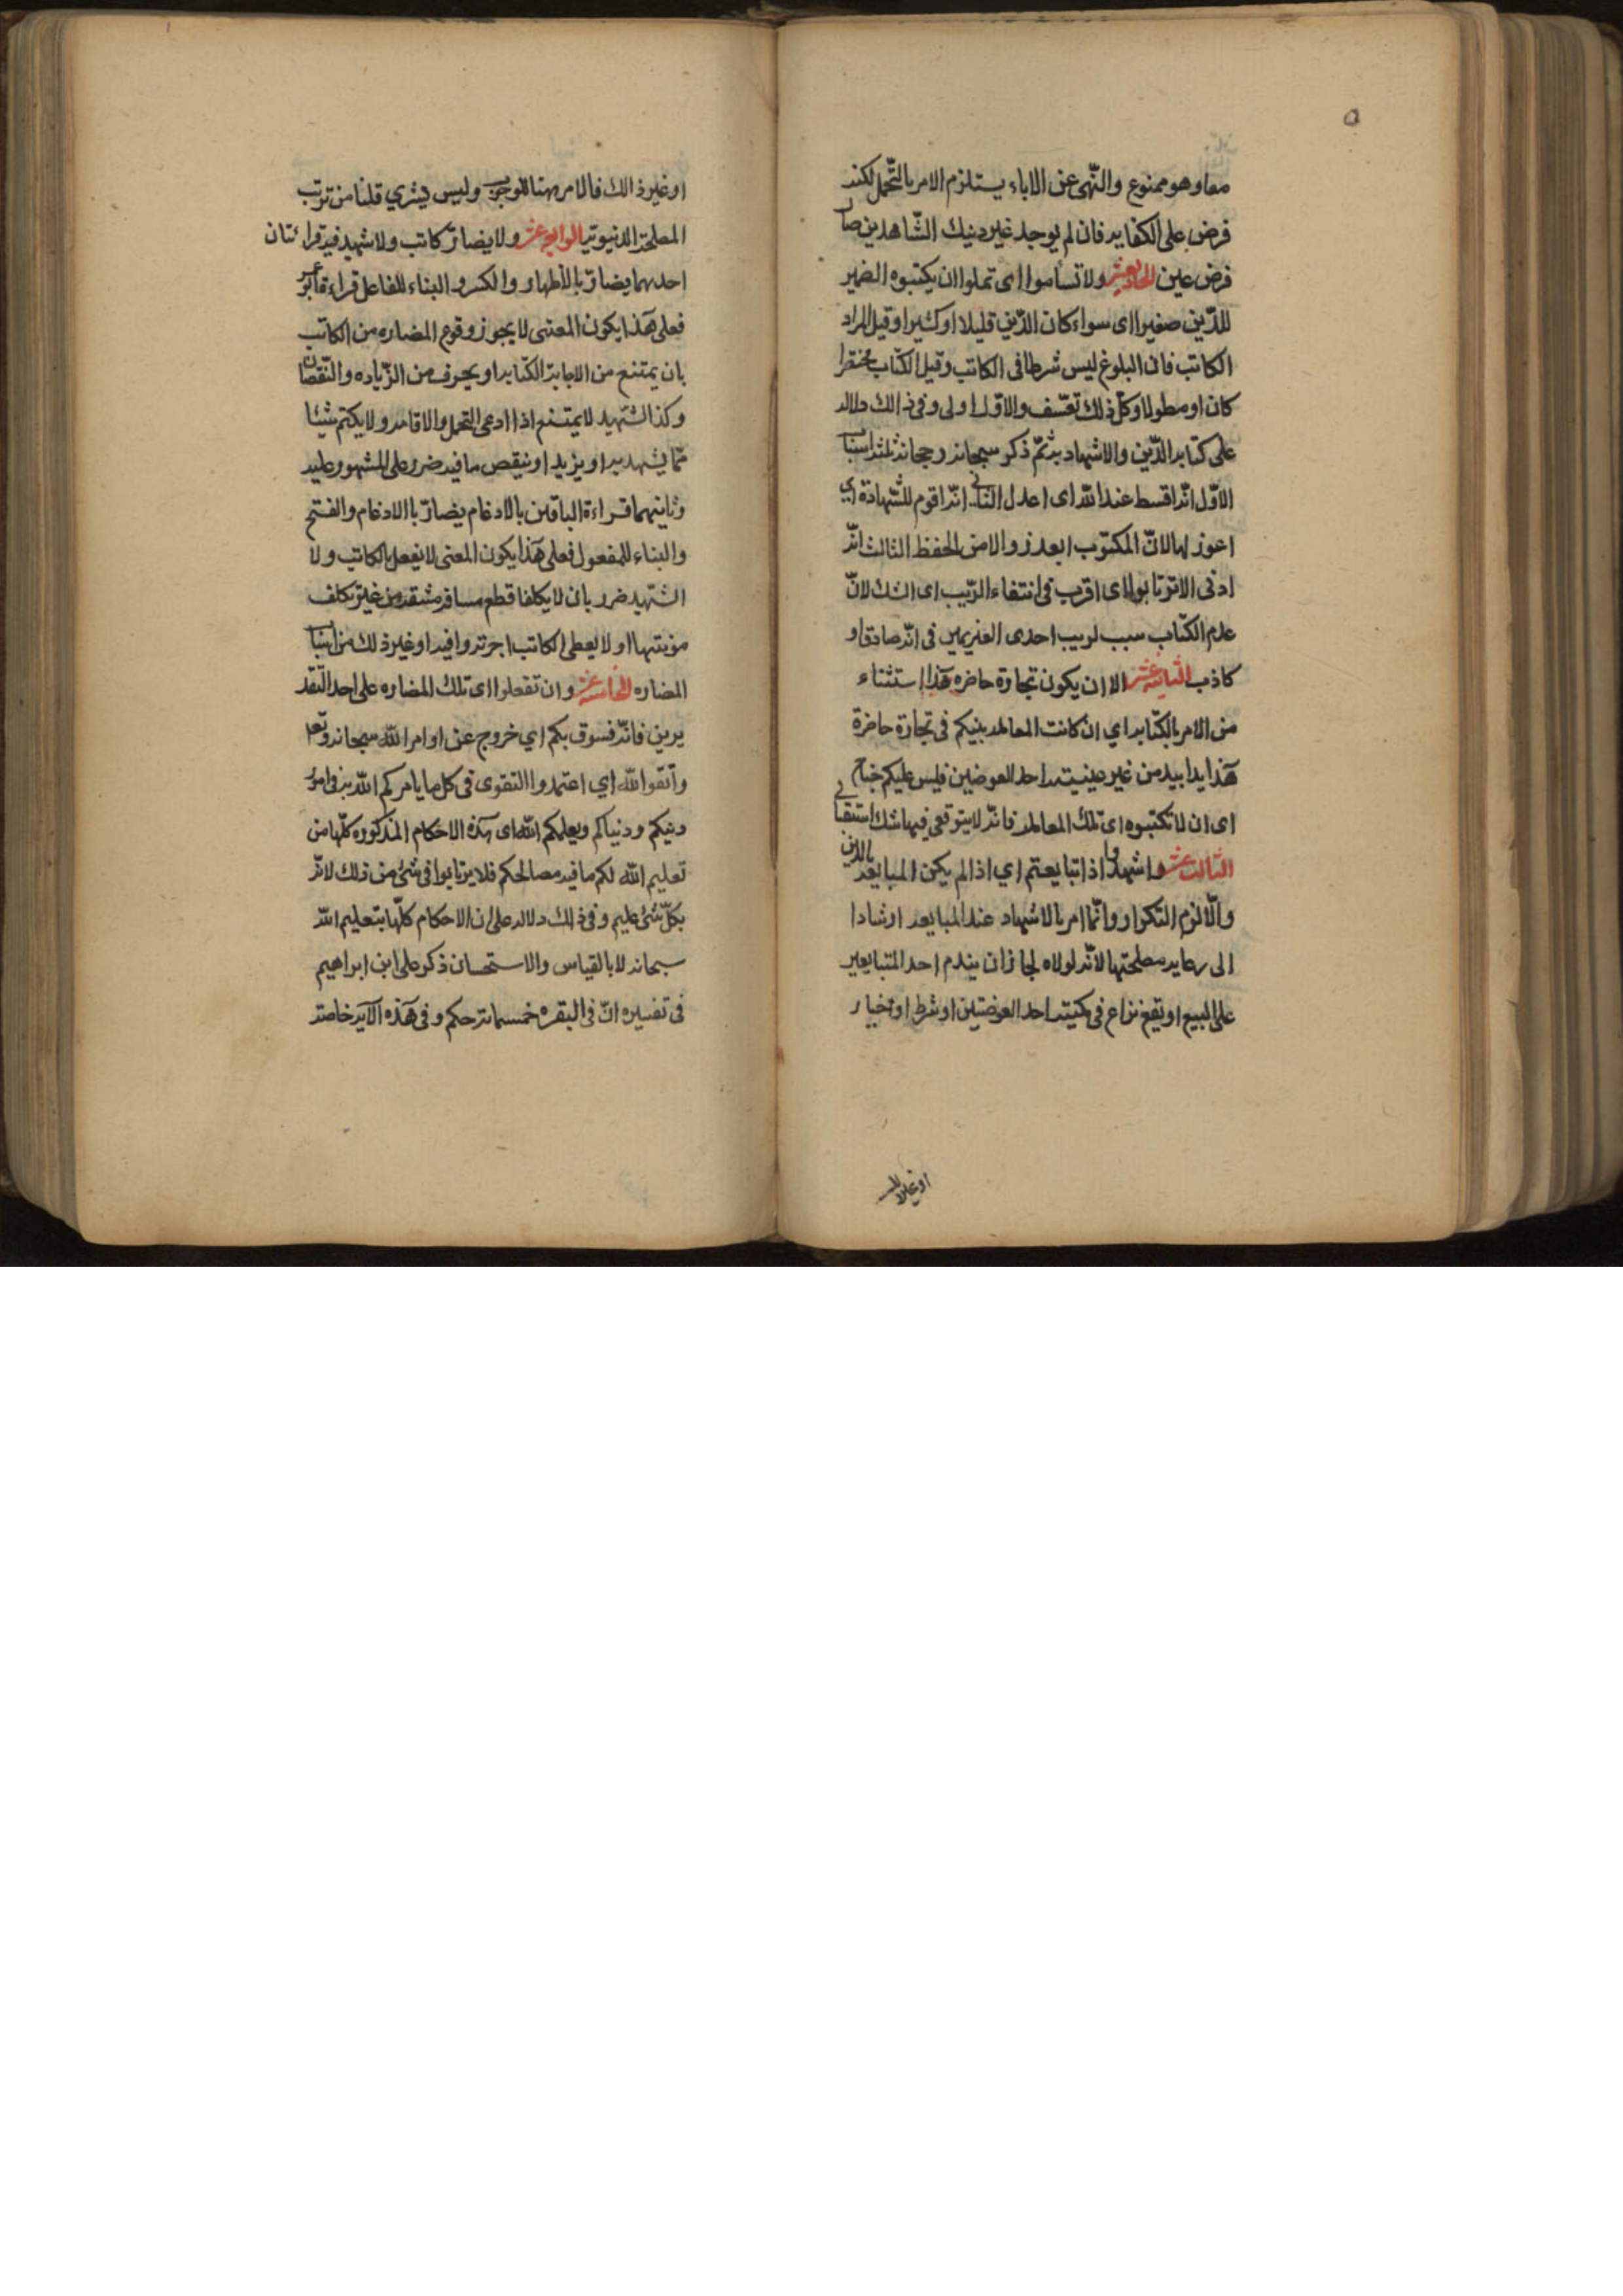 ۵
معا وهو ممنوع والنّهى عن الاباء يستلزم الامر بالتّحمل لكنه
فرض على الكفايه فان لم يوجد غير دنيك الشّاهدين صار
فرض عين الحاديعشر ولا تسأموا اى تملوا ان يكتبوه الضمير
للدّين صغيرا اى سواء كان الدّين قليلا او كثيرا وقيل المراد
الكاتب فان البلوغ ليس شرطا فى الكاتب وقيل الكتاب مختصرا
كان او مطولا وكل ذلك تعسّف والاوّل اولى وفى ذالك دلاله
على كتابه الدّين والاشهاد به ثمّ ذكر سبحانه رجحانه ثلثه اسباب
الاوّل انّه اقسط عند الله اى اعدل الثانى انّه اقوم للشّهادة اي
اعوز لها لانّ المكتوب ابعد زوالا من الحفظ الثالث انّه
ادنى الا ترتابوا اى اقرب فى انتفاء الرّيب اى الشك لانّ
عدم الكتاب سبب لريب احدى الغريمين فى انّه صادق او
كاذب الثانيه عشر الا ان يكون تجارة حاضره هذا استثناء
من الامر بالكتابه اي ان كانت المعامله بينكم فى تجارة حاضرة
هذا يدا بيد من غير عينيته احد العوضين فليس عليكم جناح
اى ان لا تكتبوه اى تلك المعامله فانّه لا يتوقعى فيها شك استقبا لي
الثالث عشر واشهدوا اذا تبايعتم اي اذا لم يكن المبايعه بالدين
والّا لزم التكرار وانّما امر بالاشهاد عند المبايعه ارشادا
الى رعايه مصلحتها لانّه لولاه لجاز ان يندم احد المتبايعين
على البيع او يقع نزاع فى كميته احد العوضين او شرط او خيار
او غير ذالك
او غير ذالك فالامر ههنا للوجوب وليس بشري قلنا من ترتب
المصلحة الدنيوتيه الرابع عشر ولا يضارّ كاتب ولا شهيد فيه قرائتان
احدهما يضارّ بالاظهار والكسر والبناء للفاعل قراءة ابو عمر
فعلى هذا يكون المعنى لا يجوز وقوع المضاره من الكاتب
بان يمتنع من الاجابة الكتابه او يحرف من الزّياده والنّقصان
وكذا الشّهيد لا يمتنع اذا ادعى التحمل والاقامه ولا يكتم شيئا
ممّا يشهد به او يزيد او ينقص ما فيه ضرر على المشهور عليه
وثانيهما قراءة الباقين بالادغام يضارّ باالادغام والفتح
والبناء للمفعول فعلى هذا يكون المعنى لا يفعل بالكاتب ولا
الشّهيد ضرر بان لا يكلفا قطع مسافه مشقه من غير تكلف
مؤنتهما او لا يعطى الكاتب اجرته وافيه او غير ذلك من اسباب
المضاره الخامسه عشر وان تفعلوا اى تلك المضاره على احد التقد
يرين فانّه فسوق بكم اي خروج عن اوامر الله سبحانه وتعلى
واتقوا الله اي اعتمدوا التقوى فى كل ما يامركم الله به فى امور
دينكم ودنياكم ويعلمكم الله اى هذه الاحكام المذكوره كلّها من
تعليم الله لكم ما فيه مصالحكم فلا يرتابوا فى شئ من ذلك لانّه
بكلّ شئ عليم وفى ذالك دلاله على ان الاحكام كلّها بتعليم الله
سبحانه لا بالقياس والاستحسان ذكر على ابن ابراهيم
فى تفسيره انّ فى البقره خمسماته حكم وفى هذه الآيه خاصته